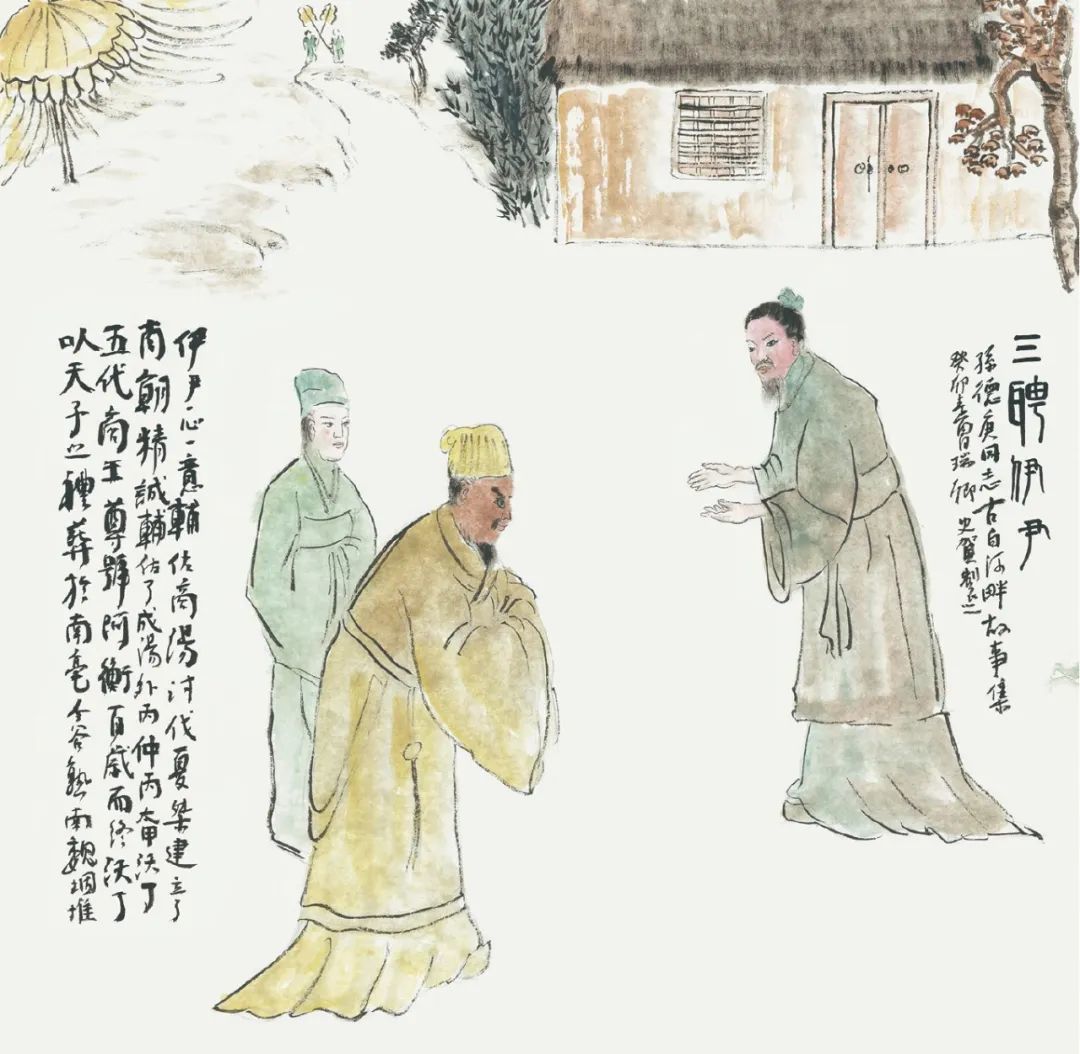 三聘伊尹
孫德庚同志古白河畔故事集
癸卯春曾瑞卿
伊尹一心一意輔佐商湯討伐夏桀建立了
商朝精誠輔佑了成湯外丙仲丙太甲沃丁
五代商王尊號阿衡百歲而終沃丁
以天子之禮葬於南亳今谷熟南魏堌堆